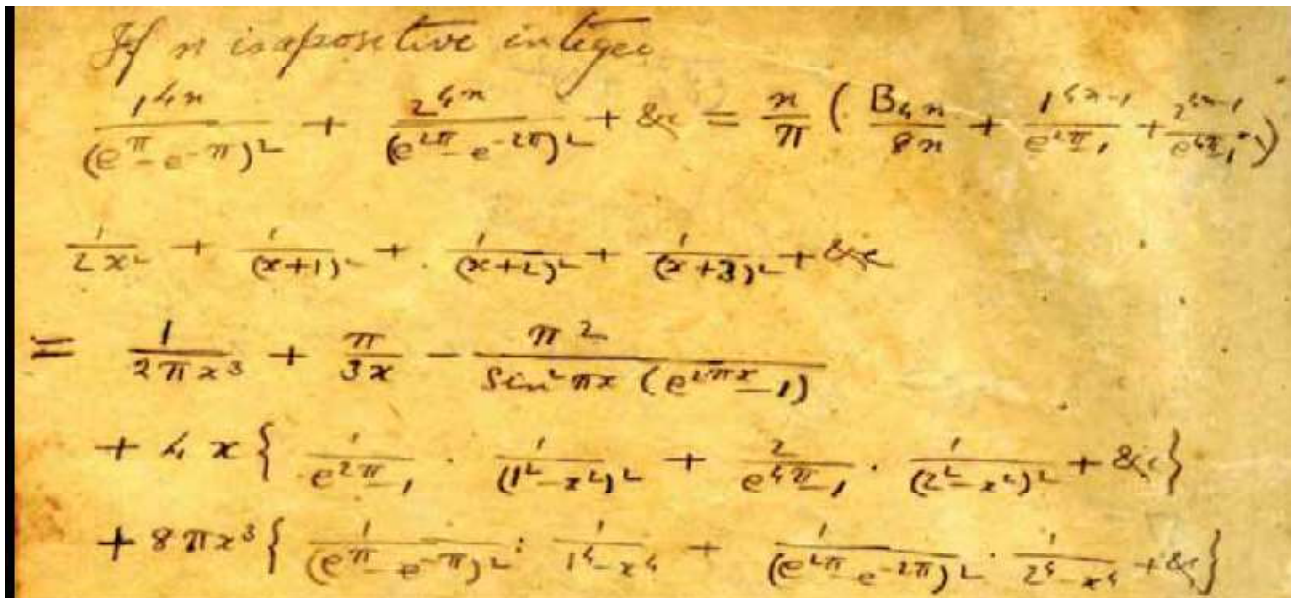 If n is a positive integer
1^{4n}/(e^{π}-e^{-π})^2 + 2^{4n}/(e^{2π}-e^{-2π})^2 + &c = n/π ( B_{4n}/8n + 1^{4n-1}/(e^{2π}-1) + 2^{4n-1}/(e^{4π}-1) )
1/2x^2 + 1/(x+1)^2 + 1/(x+2)^2 + 1/(x+3)^2 + &c
= 1/2πx^3 + π/3x - π^2/(Sin^2 πx (e^{2πx}-1))
+ 4x { 1/(e^{2π}-1) · 1/(1^2-x^2)^2 + 2/(e^{4π}-1) · 1/(2^2-x^2)^2 + &c }
+ 8πx^3 { 1/(e^{π}-e^{-π})^2 · 1/(1^4-x^4) + 1/(e^{2π}-e^{-2π})^2 · 1/(2^4-x^4) + &c }